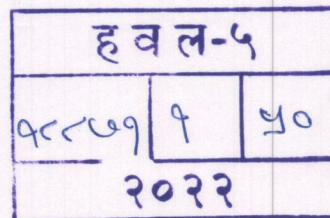 ह व ल-५
१८८७१ १ ५०
२०२२